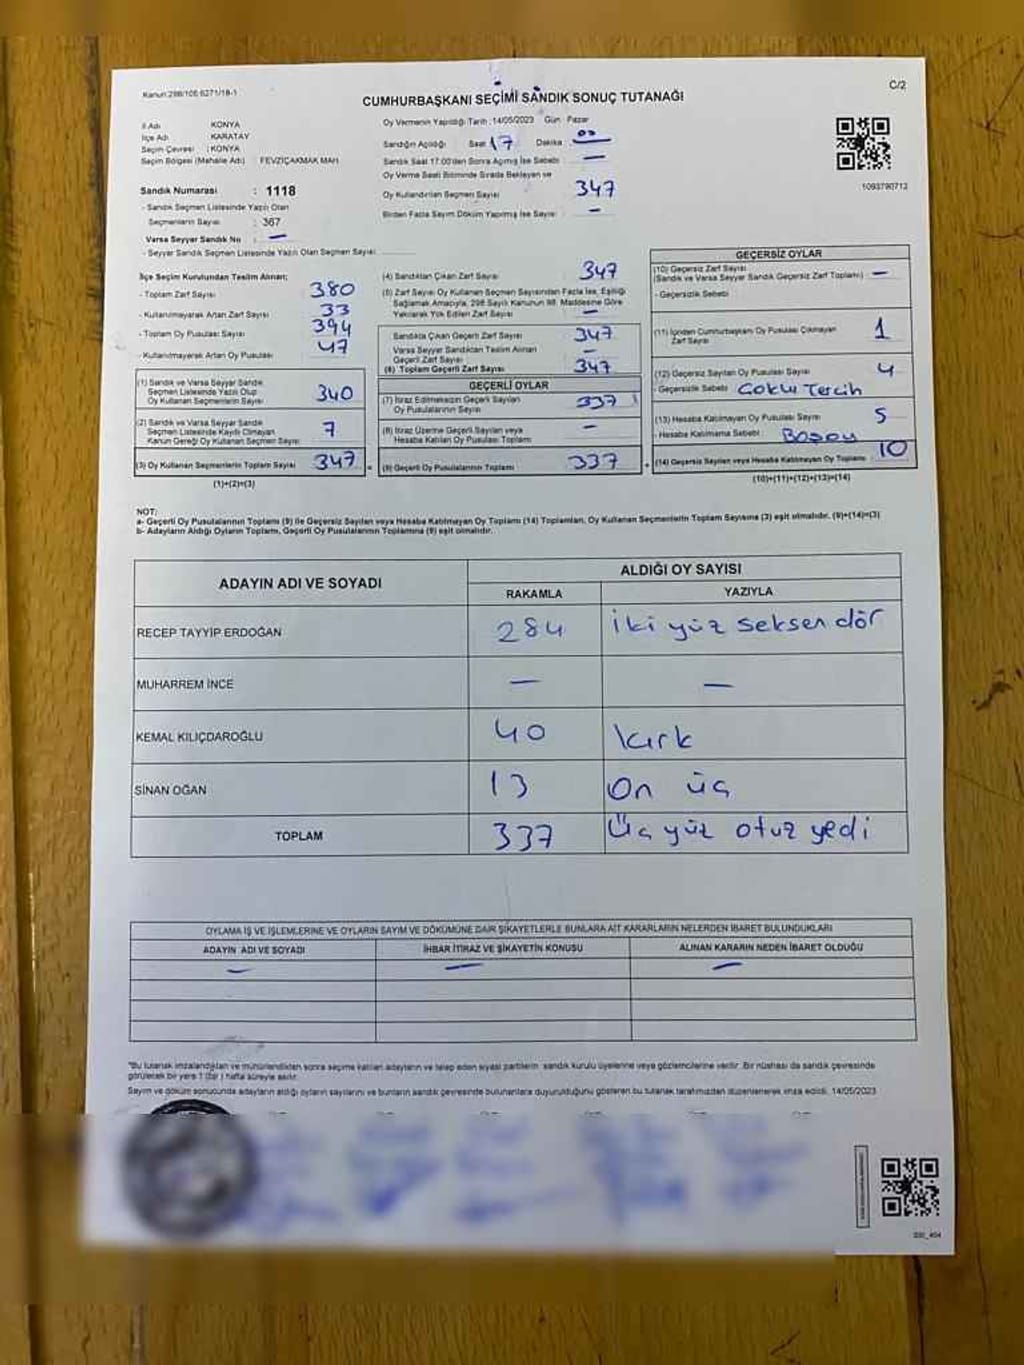 Kanun:298/105:6271/18-1
C/2
CUMHURBAŞKANI SEÇİMİ SANDIK SONUÇ TUTANAĞI
İl Adı KONYA
İlçe Adı KARATAY
Seçim Çevresi : KONYA
Seçim Bölgesi (Mahalle Adı) FEVZİÇAKMAK MAH.
Sandık Numarası : 1118
- Sandık Seçmen Listesinde Yazılı Olan
Seçmenlerin Sayısı : 367
Varsa Seyyar Sandık No : —
- Seyyar Sandık Seçmen Listesinde Yazılı Olan Seçmen Sayısı
Oy Vermenin Yapıldığı Tarih : 14/05/2023 Gün : Pazar
Sandığın Açıldığı Saat 17 Dakika 00
Sandık Saat 17.00'den Sonra Açılmış İse Sebebi —
Oy Verme Saati Bitiminde Sırada Bekleyen ve
Oy Kullandırılan Seçmen Sayısı 347
Birden Fazla Sayım Döküm Yapılmış İse Sayısı —
1093790712
İlçe Seçim Kurulundan Teslim Alınan;
- Toplam Zarf Sayısı 380
- Kullanılmayarak Artan Zarf Sayısı 33
- Toplam Oy Pusulası Sayısı 394
- Kullanılmayarak Artan Oy Pusulası 47
(1) Sandık ve Varsa Seyyar Sandık
Seçmen Listesinde Yazılı Olup
Oy Kullanan Seçmenlerin Sayısı 340
(2) Sandık ve Varsa Seyyar Sandık
Seçmen Listesinde Kayıtlı Olmayan
Kanun Gereği Oy Kullanan Seçmen Sayısı 7
(3) Oy Kullanan Seçmenlerin Toplam Sayısı 347
(1)+(2)=(3)
(4) Sandıktan Çıkan Zarf Sayısı 347
(5) Zarf Sayısı Oy Kullanan Seçmen Sayısından Fazla İse, Eşitliği
Sağlamak Amacıyla, 298 Sayılı Kanunun 98. Maddesine Göre
Yakılarak Yok Edilen Zarf Sayısı —
Sandıkta Çıkan Geçerli Zarf Sayısı 347
Varsa Seyyar Sandıktan Teslim Alınan
Geçerli Zarf Sayısı —
(6) Toplam Geçerli Zarf Sayısı 347
GEÇERLİ OYLAR
(7) İtiraz Edilmeksizin Geçerli Sayılan
Oy Pusulalarının Sayısı 337
(8) İtiraz Üzerine Geçerli Sayılan veya
Hesaba Katılan Oy Pusulası Toplamı —
(9) Geçerli Oy Pusulalarının Toplamı 337
GEÇERSİZ OYLAR
(10) Geçersiz Zarf Sayısı
(Sandık ve Varsa Seyyar Sandık Geçersiz Zarf Toplamı) —
- Geçersizlik Sebebi
(11) İçinden Cumhurbaşkanı Oy Pusulası Çıkmayan
Zarf Sayısı 1
(12) Geçersiz Sayılan Oy Pusulası Sayısı 4
- Geçersizlik Sebebi Çoklu Tercih
(13) Hesaba Katılmayan Oy Pusulası Sayısı 5
- Hesaba Katılmama Sebebi :
(14) Geçersiz Sayılan veya Hesaba Katılmayan Oy Toplamı 10
(10)+(11)+(12)+(13)=(14)
NOT:
a- Geçerli Oy Pusulalarının Toplamı (9) ile Geçersiz Sayılan veya Hesaba Katılmayan Oy Toplamı (14) Toplamları, Oy Kullanan Seçmenlerin Toplam Sayısına (3) eşit olmalıdır. (9)+(14)=(3)
b- Adayların Aldığı Oyların Toplamı, Geçerli Oy Pusulalarının Toplamına (9) eşit olmalıdır.
ADAYIN ADI VE SOYADI ALDIĞI OY SAYISI
RAKAMLA YAZIYLA
RECEP TAYYİP ERDOĞAN 284 iki yüz seksen dör
MUHARREM İNCE — —
KEMAL KILIÇDAROĞLU 40 kırk
SİNAN OĞAN 13 On üç
TOPLAM 337 Üç yüz otuz yedi
OYLAMA İŞ VE İŞLEMLERİNE VE OYLARIN SAYIM VE DÖKÜMÜNE DAİR ŞİKAYETLERLE BUNLARA AİT KARARLARIN NELERDEN İBARET BULUNDUKLARI
ADAYIN ADI VE SOYADI İHBAR İTİRAZ VE ŞİKAYETİN KONUSU ALINAN KARARIN NEDEN İBARET OLDUĞU
— — —
*Bu tutanak imzalandıktan ve mühürlendikten sonra seçime katılan adayların ve talep eden siyasi partilerin sandık kurulu üyelerine veya gözlemcilerine verilir. Bir nüshası da sandık çevresinde
görülecek bir yere 1 (bir) hafta süreyle asılır.
Sayım ve döküm sonucunda adayların aldığı oyların sayılarını ve bunların sandık çevresinde bulunanlara duyurulduğunu gösteren bu tutanak tarafımızdan düzenlenerek imza edildi. 14/05/2023